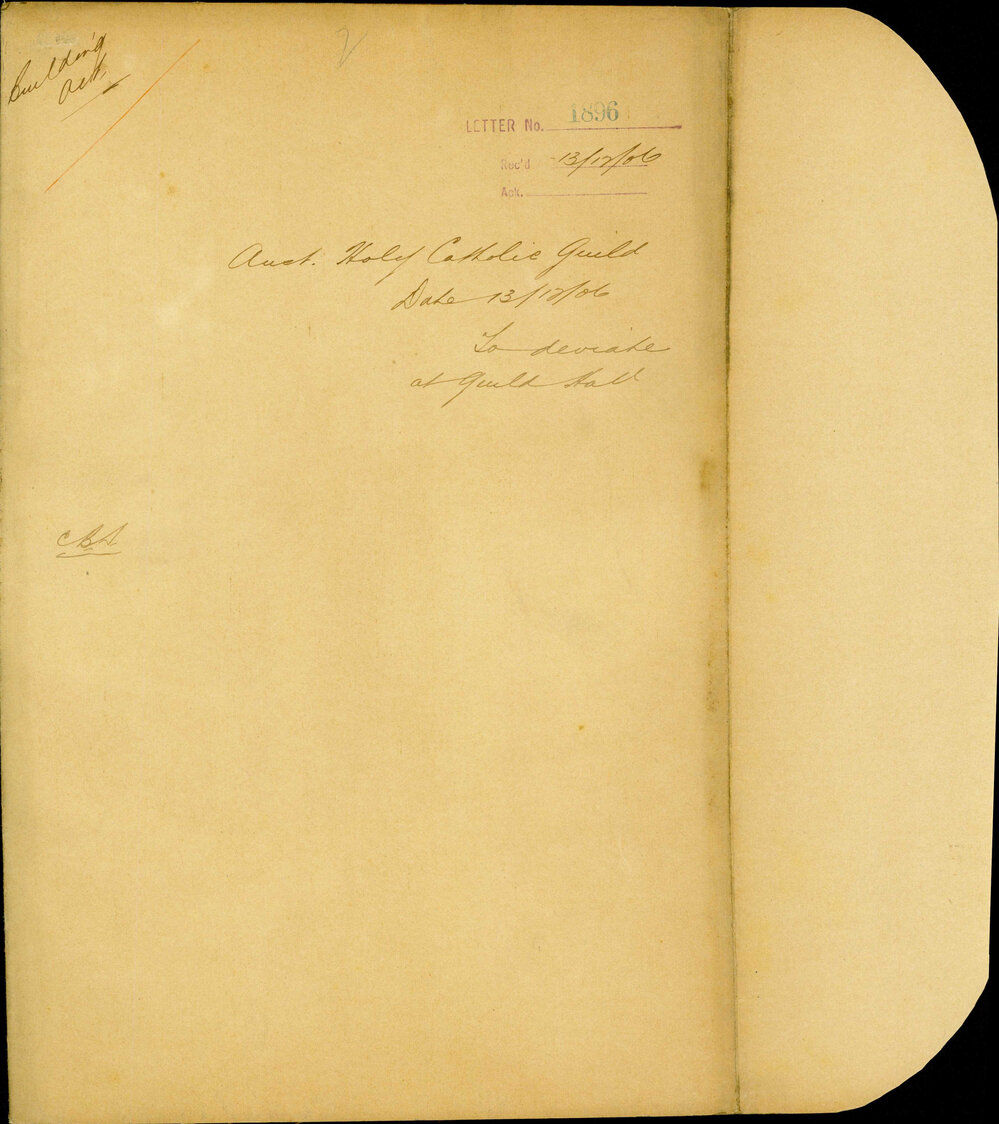 Building
Act
2
LETTER No. 1896
Rec'd 13/12/06
Ack.
Aust. Holy Catholic Guild
Date 13/12/06
To deviate
at Guild Hall